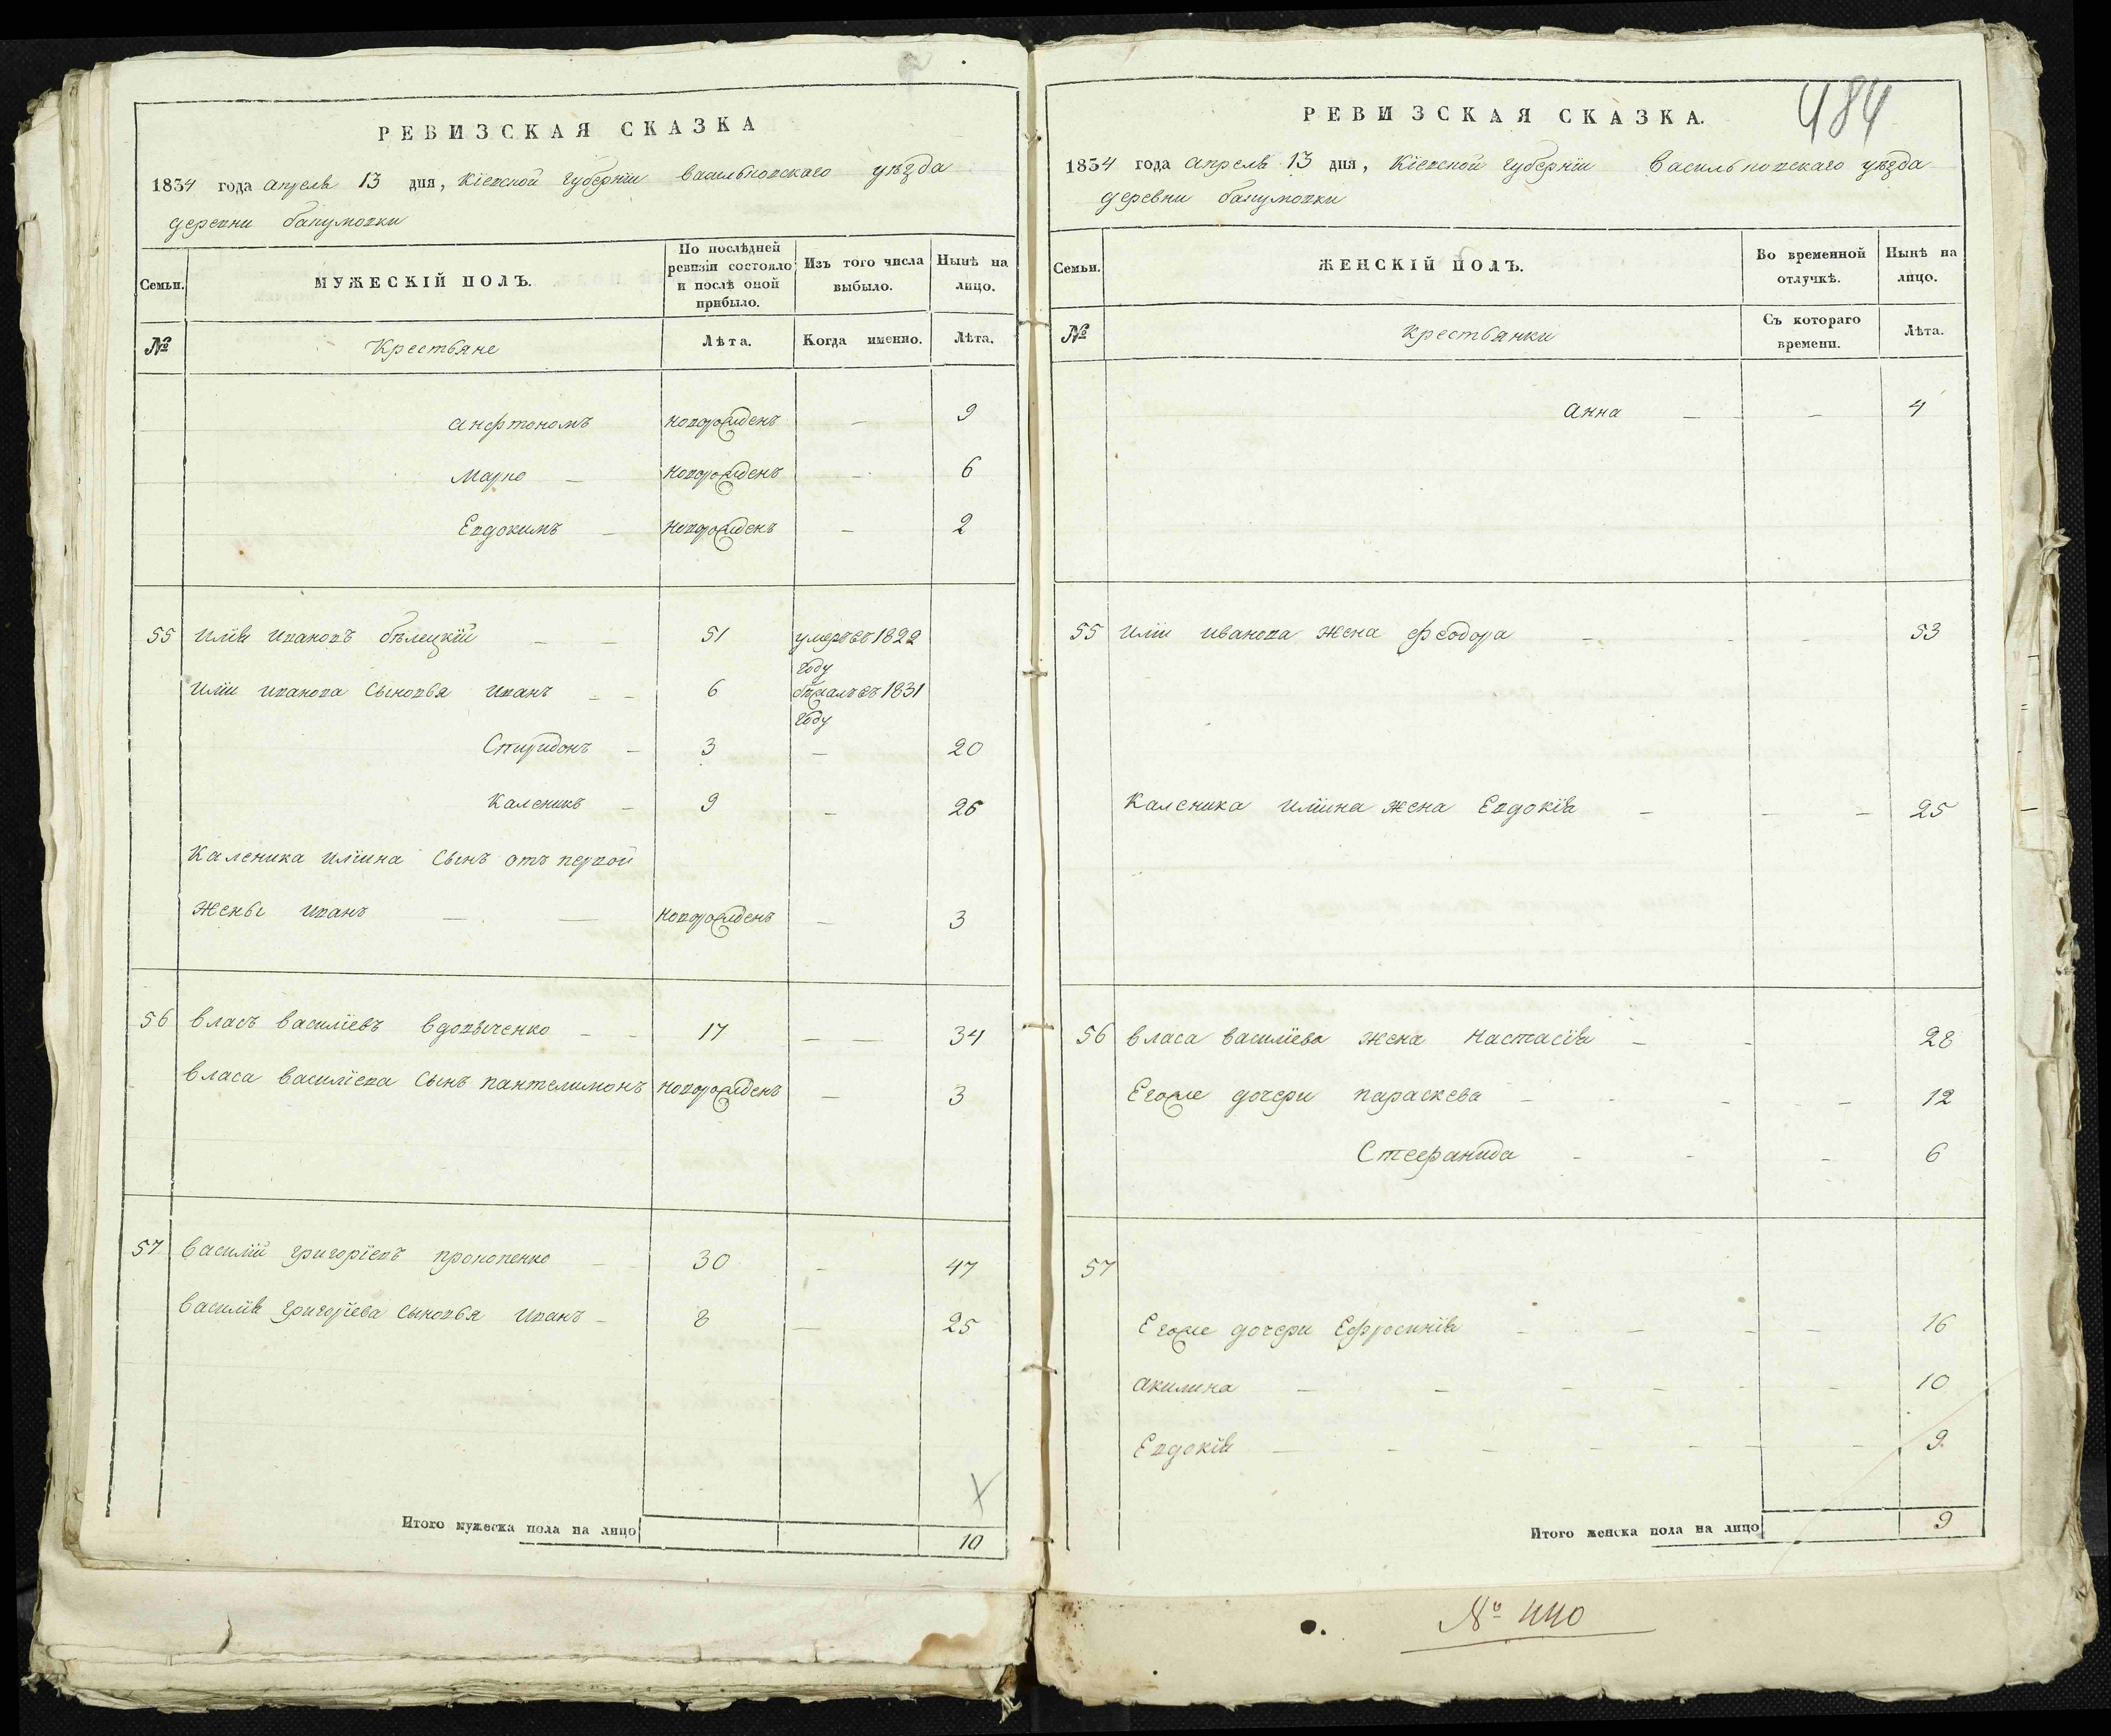 РЕВИЗСКАЯ СКАЗКА
1834 года апреля 13 дня, Кіевской губерніи васильковскаго уѣзда
деревни
Семьи.
МУЖЕСКІЙ ПОЛЪ.
По послѣдней ревизіи состояло и послѣ оной прибыло.
Изъ того числа выбыло.
Нынѣ на лицо.
№
Крестьяне
Лѣта.
Когда именно.
Лѣта.
анфтономъ новорожденъ — 9
Марко — новорожденъ — 6
Евдокимъ — новорожденъ — 2
55 Илія Ивановъ бѣлецкій — — 51 умеръ въ 1822
году
Иліи Иванова сыновья Иванъ — — 6 бѣжалъ въ 1831
году
Спиридонъ — 3 — 20
Каленикъ — 9 — 26
Каленика Иліина сынъ отъ первой
жены Иванъ — — новорожденъ — 3
56 Власъ Василіевъ Вдовыченко — — 17 — — 34
Власа Василіева сынъ пантелимонъ новорожденъ — 3
57 Василій григоріевъ прокопенко — 30 — 47
Василія григоріева сыновья Иванъ — 8 — 25
Итого мужеска пола на лицо
10
484
РЕВИЗСКАЯ СКАЗКА.
1834 года апреля 13 дня, Кіевской губерніи Васильковскаго уѣзда
деревни
Семьи.
ЖЕНСКІЙ ПОЛЪ.
Во временной отлучкѣ.
Нынѣ на лицо.
№
Крестьянки
Съ котораго времени.
Лѣта.
Анна — — — 4
55 Иліи Иванова жена феодора — — — 53
Каленика Иліина жена Евдокія — — — 25
56 Власа Василіева жена Настасія — — 28
Егоже дочери параскева — — — — — 12
Стефанида — — — 6
57
Егоже дочери Ефросинія — — — — 16
акилина — — — — — — 10
Евдокія — — — — — — — 9
Итого женска пола на лицо
9
№ 440